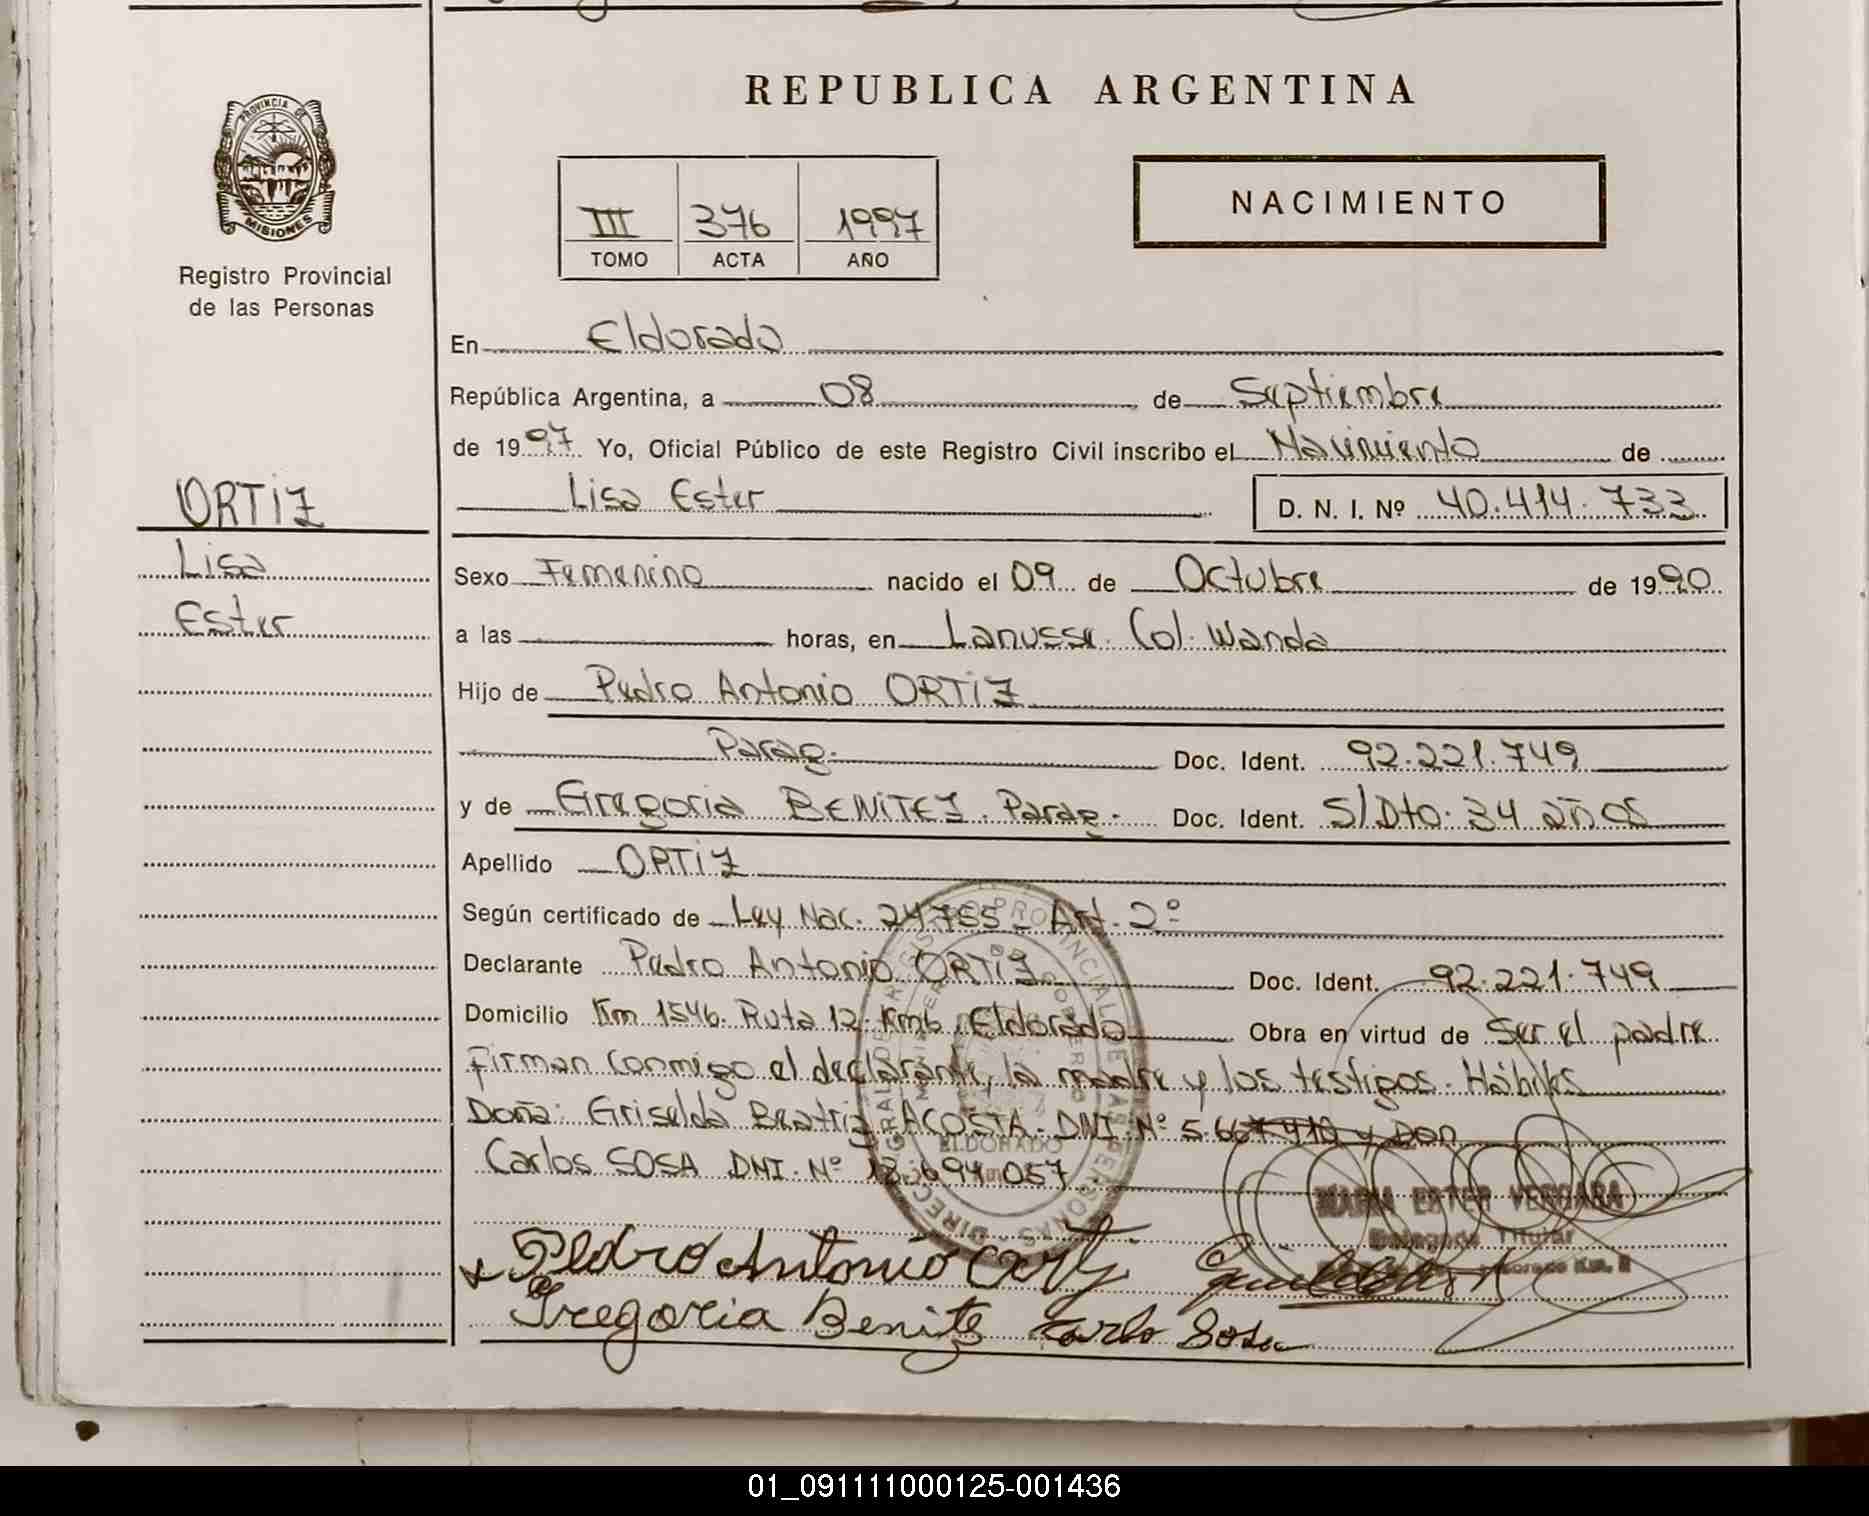 REPUBLICA ARGENTINA
PROVINCIA DE
MISIONES
Registro Provincial
de las Personas
III 376 1997
TOMO ACTA AÑO
NACIMIENTO
En Eldorado
República Argentina, a 08 de Septiembre
de 1997 Yo, Oficial Público de este Registro Civil inscribo el Nacimiento de
ORTIZ
Lisa Ester D. N. I. Nº 40.414.733
Lisa
Sexo Femenino nacido el 09 de Octubre de 1990
Ester
a las horas, en Lanusse. Col. Wanda
Hijo de Pedro Antonio ORTIZ
Parag. Doc. Ident. 92.221.749
y de Gregoria BENITEZ. Parag. Doc. Ident. S/Dto. 34 años
Apellido ORTIZ
Según certificado de Ley Nac. 24.755. Art. 2º
Declarante Pedro Antonio ORTIZ Doc. Ident. 92.221.749
Domicilio Km 1546. Ruta 12 Km6. Eldorado Obra en virtud de Ser el padre
Firman conmigo el declarante, la madre y los testigos. Hábiles
Doña: Griselda Beatriz ACOSTA. DNI. Nº y Don
Carlos SOSA DNI. Nº 694.057
ELDORADO
MARIA ESTER VERGARA
Delegada Titular
Pedro Antonio Ortiz
Gregoria Benitez Carlo Sosa
01_091111000125-001436